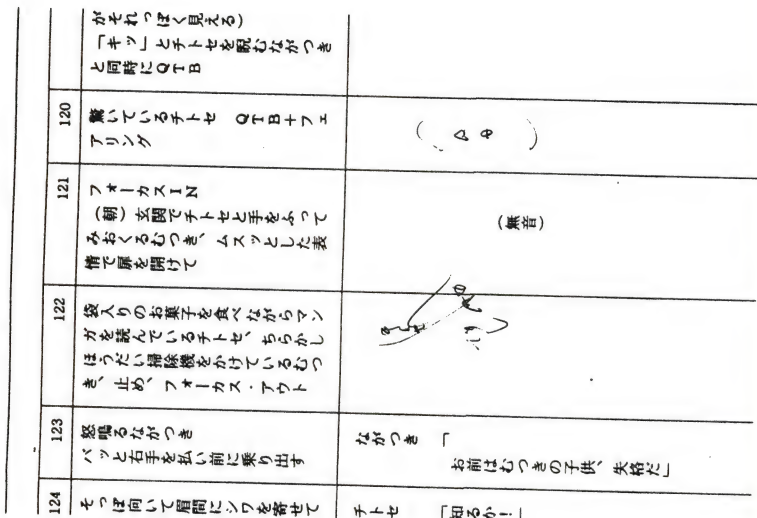 がそれっぽく見える)
「キッ」とチトセを睨むながつき
と同時にQTB
120
驚いているチトセ　QTB+フェ
アリング
121
フォーカスIN
(朝)玄関でチトセと手をふって
みおくるむつき、ムスッとした表
情で扉を開けて
(無音)
122
袋入りのお菓子を食べながらマン
ガを読んでいるチトセ、ちらかし
ほうだい掃除機をかけているむつ
き、止め、フォーカス・アウト
123
怒鳴るながつき
バッと右手を払い前に乗り出す
ながつき　「
お前はむつきの子供、失格だ」
124
そっぽ向いて眉間にシワを寄せて
チトセ　「知るか!」